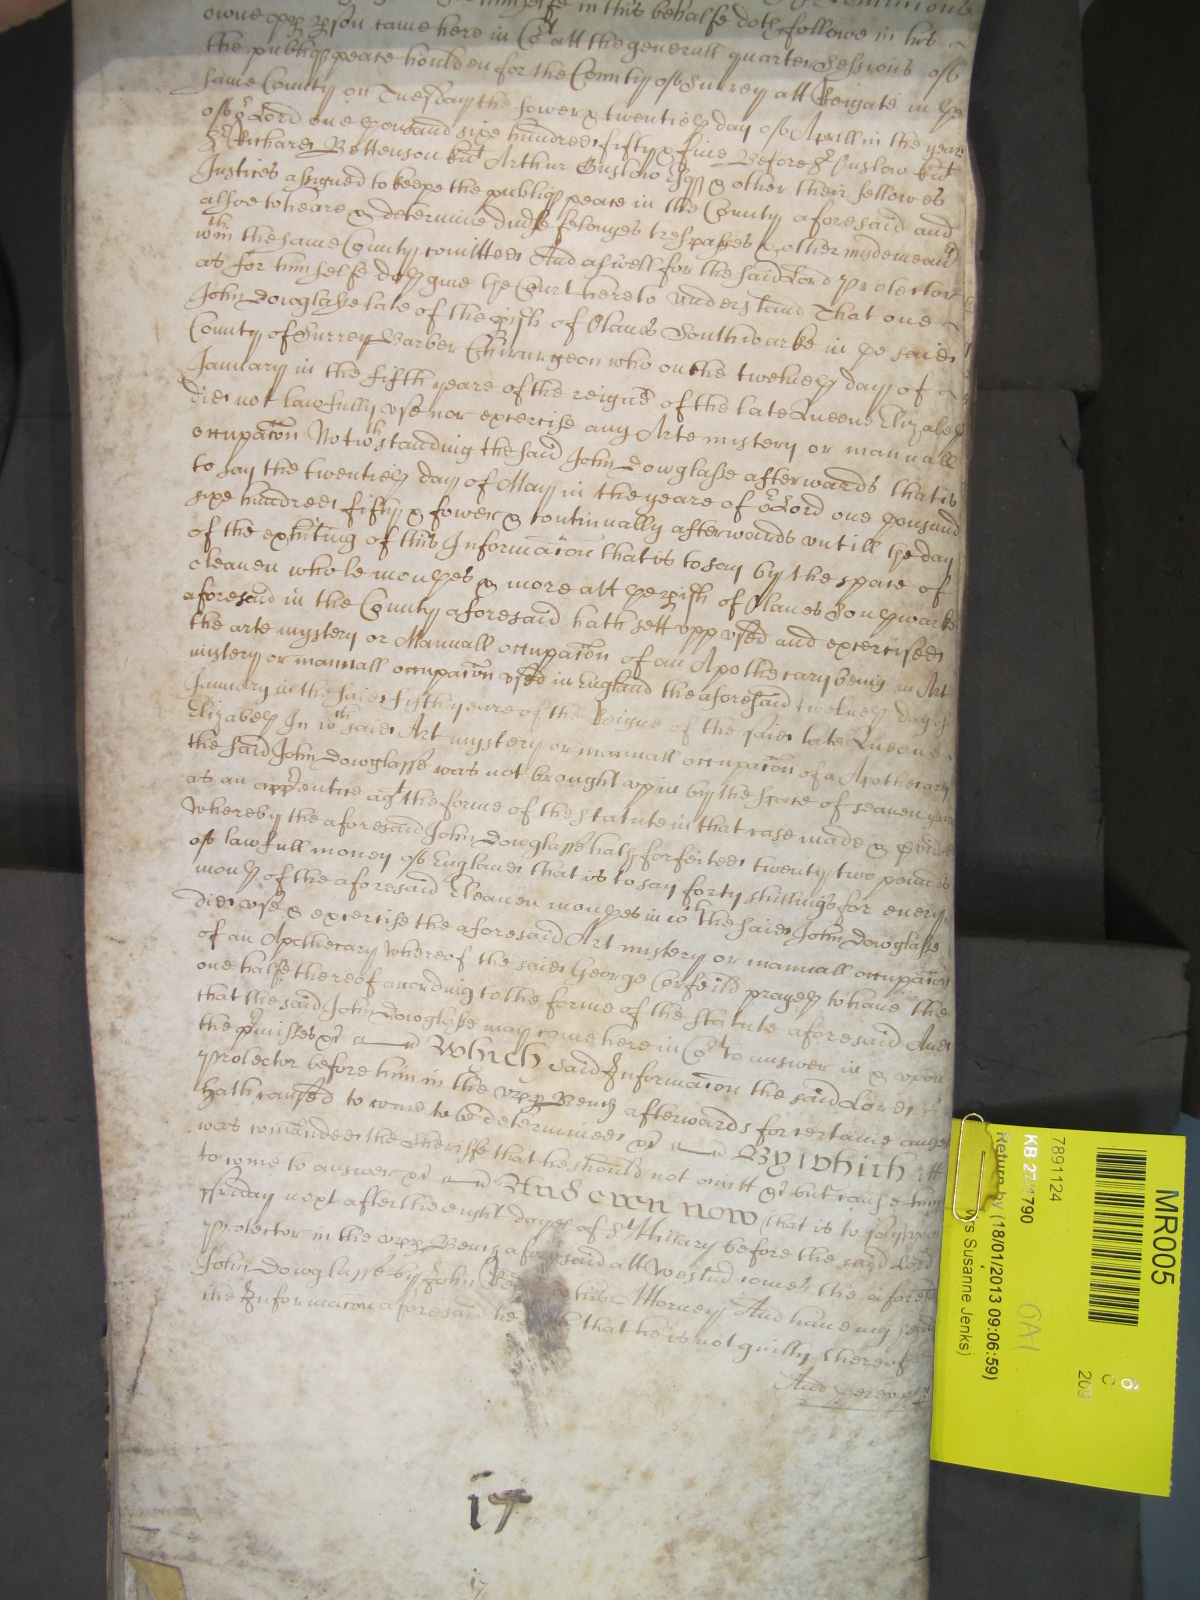 himselfe in this behalfe doth followe in his
owne pper pson came here in Cot att the generall quarter Sessions of
the publiq peace houlden for the County of Surrey att Reigate in ye
same County on Tuesday the fower & twentieth day of Aprill in the yeare
of or Lord one thousand sixe hundred fifty & five Before Onslow knt
Richard Bettenson knt Arthur Onslow Esqr & other their fellowes
Justices assigned to keepe the publiq peace in the County aforesaid and
alsoe to heare & determine felonyes trespasses & other misdemeanrs
wthin the same County comitted And aswell for the said Lord Protector
as for himselfe doth give the Court here to understand That one
John Dowglasse late of the pish of Olaves Southwarke in ye said
County of Surrey Barber Chirurgeon who on the twelveth day of
January in the fifth yeare of the reigne of the late Queene Elizabeth
did not lawfully use nor exercise any Arte mistery or manuall
occupacon Notwthstanding the said John Dowglasse afterwards that is
to say the twentieth day of May in the yeare of or Lord one thousand
sixe hundred fifty & fower & continually afterwards untill the day
of the exhiting of this Informacon that is to say by the space of
eleaven whole monthes & more att the pish of Olaves Southwarke
aforesaid in the County aforesaid hath sett upp used and exercised
the arte mystery or Manuall occupacon of an Apothecary being an Art
mistery or manuall occupacon used in England the aforesaid twelveth day of
January in the said fifth yeare of the Reigne of the said late Queene
Elizabeth In wch said Art mystery or manuall occupacon of a Apothecary
the said John Dowglasse was not brought upp in by the space of seaven yeares
as an apprentice agt the forme of the Statute in that case made & pvided
Whereby the aforesaid John Dowglasse hath forfeited twenty two pounds
of lawfull money of England that is to say forty shillings for every
month of the aforesaid Eleaven monthes in wch the said John Dowglasse
did use & exercise the aforesaid Art mistery or manuall occupacon
of an Apothecary Whereof the said George Corfeild prayeth to have the
one halfe thereof according to the forme of the Statute aforesaid And
that the said John Dowglasse may come here in Cot to answer in & upon
the pmisses &c Which said Informacon the said Lord
Protector before him in the upp Bench afterwards for certaine causes
hath caused to come to be determined &c By which itt
was comanded the Sheriffe that he should not omitt &c but cause him
to come to answer &c And even now that is to say upon
Fryday next after the eight dayes of St Hillary before the said Lord
Protector in the upp Bench aforesaid att Westm comes the aforesd
John Dowglasse by John his Attorney And haveing heard
the Informacon aforesaid he that he is not guilty thereof
And thereupon
17
17
MR005
7891124
KB 27/1790
Return by (18/01/2013 09:06:59)
Susanne Jenks)
GA1
6
C